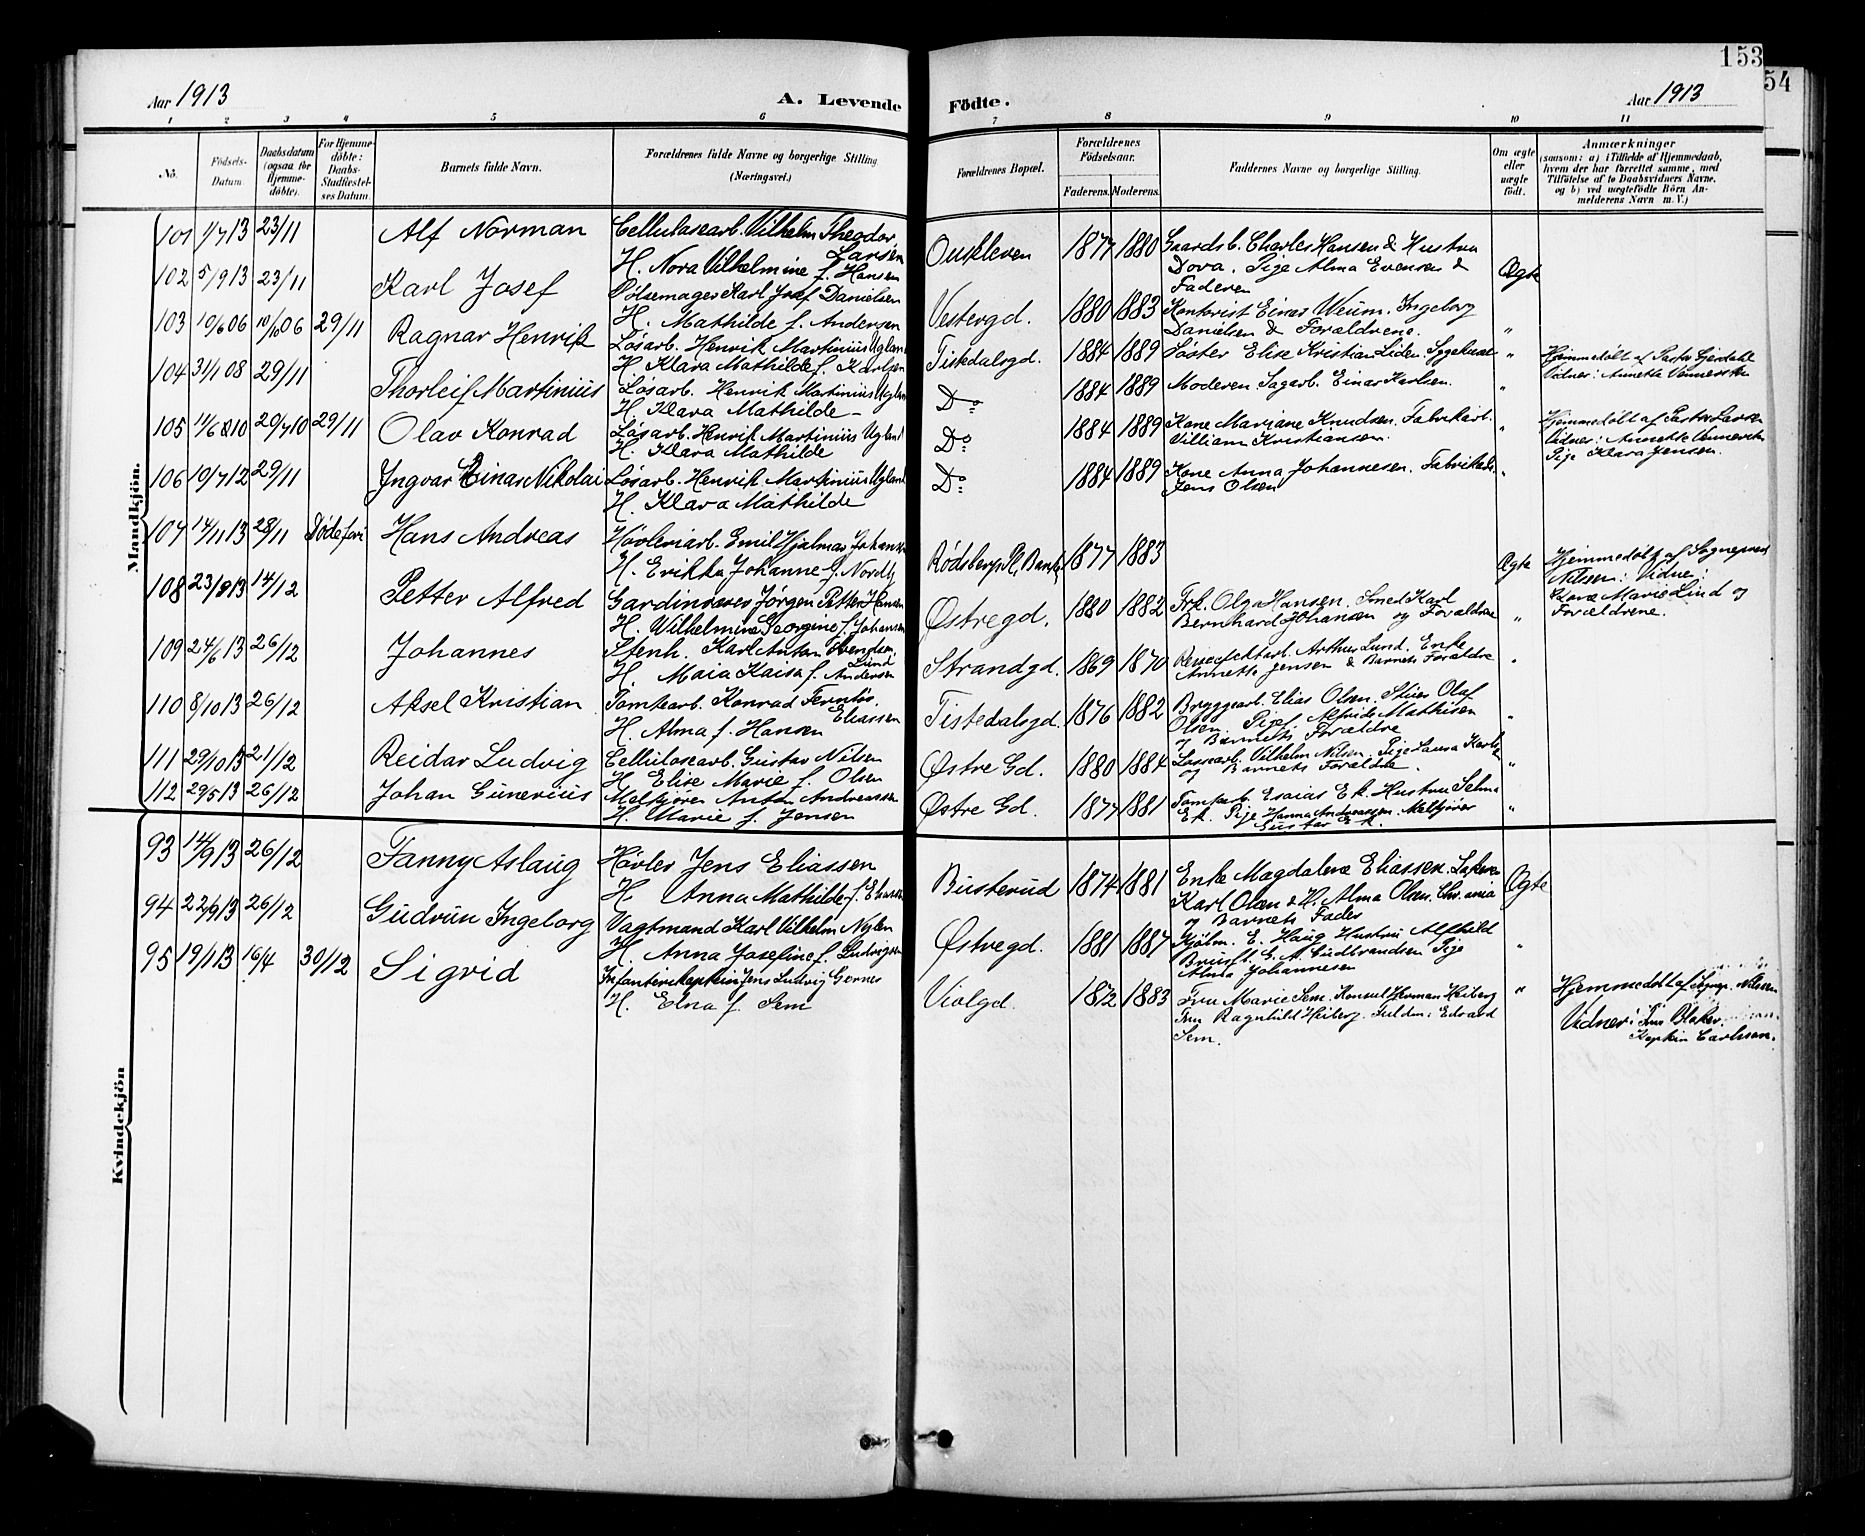 153
54
Aar 1913
A. Levende
Födte.
Aar 1913
1 2 3 4 5 6 7 8 9 10 11
No.
Födsels-
Datum.
Daabsdatum
(ogsaa for
Hjemme-
döbte).
For Hjemme-
döbte:
Daabs-
Stadfæstel-
ses Datum.
Barnets fulde Navn.
Forældrenes fulde Navne og borgerlige Stilling
(Næringsvei.)
Forældrenes Bopæl.
Forældrenes
Födselsaar.
Faderens. Moderens.
Faddernes Navne og borgerlige Stilling.
Om ægte
eller
uægte
födt.
Anmærkninger
(saasom: a) i Tilfælde af Hjemmedaab,
hvem der har forrettet samme, med
Tilföielse af to Daabsvidners Navne,
og b) ved uægtefödte Börn An-
melderens Navn m. V.)
Mandkjön.
101 1/7 13 23/11 Alf Norman
Cellulosearb. Vilhelm Theodor
Larsen
H. Nora Vilhelmine f. Hansen
1877 1880
Gaardsb. Charles Hansen & Hustru
Dova. Pige Alma Evensen &
Faderen
Ægte
102 5/9 13 23/11 Karl Josef
Pølsemager Karl Josef Danielsen
H. Mathilde f. Andersen
Vestergd. 1880 1883
Kontorist Einar Weum. Ingeborg
Danielsen & Forældrene.
"
103 10/6 06 10/10 06 29/11 Ragnar Henrik
Løsarb. Henrik Martinius Ugland
H. Klara Mathilde f. Karlsen
Tistedalsgd. 1884 1889
Søster Elise Kristian Liden
"
Hjemmedøbt af Pastor
Vidner: Annette
104 31/1 08 29/11 Thorleif Martinius
Løsarb. Henrik Martinius Ugland
H. Klara Mathilde -
Do 1884 1889
Moderen. Sagarb. Einar Karlsen.
"
105 14/6 10 29/7 10 29/11 Olav Konrad
Løsarb. Henrik Martinius Ugland
H. Klara Mathilde
Do 1884 1889
Kone Mariane Knudsen. Fabrikarb.
Villiam Kristiansen.
"
Hjemmedøbt af Pastor Larsen
Vidner: Annette
Pige Klara Jensen.
106 19/7 12 29/11 Ingvar Einar Nikolai
Løsarb. Henrik Martinius Ugland
H. Klara Mathilde
Do 1884 1889
Kone Anna Johannesen. Fabrikarb.
Jens Olsen
"
107 14/11 13 28/11 Hans Andreas
Høvleriarb. Emil Hjalmar Johansen
H. Erikka Johanne f. Nordby
Rødsberg 1877 1883
Ægte
Hjemmedøbt af Sogneprest
Nilsen: Vidne:
Marie Lind og
Forældrene.
108 23/8 13 14/12 Petter Alfred
Gardinvæver Jørgen Petter Hansen
H. Wilhelmine Georgine f. Johansen
Østregd. 1880 1882
Frk. Olga Hansen. Smed Karl
Bernhard Johansen og Forældre
"
109 24/6 13 26/12 Johannes
Stenh. Karl Anton
Lund
H. Maia Kaisa f. Andersen
Strandgd. 1869 1870
Arthur Lund. Enke
Annette Jensen & Barnets Forældre
"
110 8/10 13 26/12 Aksel Kristian
Tomtearb. Konrad
Eliassen
H. Alma f. Hansen
Tistedalsgd. 1876 1882
Bryggearb. Elias Olsen. Olaf
Olsen. Pige Mathisen
og Barnets Forældre
"
111 29/10 13 21/12 Reidar Ludvig
Cellulosearb. Gustav Nilsen
H. Elise Marie f. Olsen
Østre Gd. 1880 1884
Vilhelm Nilsen. Pige Laura Karlsen
og Barnets Forældre.
"
112 29/5 13 26/12 Johan Gunerius
Melkjører Anton Andreassen
H. Marie f. Jensen
Østre Gd. 1877 1881
Tomtearb. Esaias Ek. Hustru Selma
Ek. Pige Hanna Andreassen. Melkjører
Gustav Ek.
"
Kvindekjön
93 14/9 13 26/12 Fanny Aslaug
Høvler Jens Eliassen
H Anna Mathilde f.
Busterud 1874 1881
Enke Magdalene Eliassen.
Karl Olsen & H. Alma Olsen.
og Barnets Fader
Ægte
94 22/9 13 26/12 Gudrun Ingeborg
Vagtmand Karl Vilhelm Nylen
H. Anna Josefine f. Ludvigsen
Østregd. 1881 1887
E. Haug Hustru Alfhild
Gudbrandsen Pige
Alma Johannesen
"
95 19/1 13 16/4 30/12 Sigrid
Infanterikaptein Jens Ludvig Gernes
H. Elna f. Sem
Violgd. 1872 1883
Fru Marie Sem. Konsul Herman Heiberg
Fru Ragnhild Heiberg. Edvard
Sem.
"
Hjemmedøbt af Sognep. Nilssen
Vidner: Fru
Kaptein Carlsson.